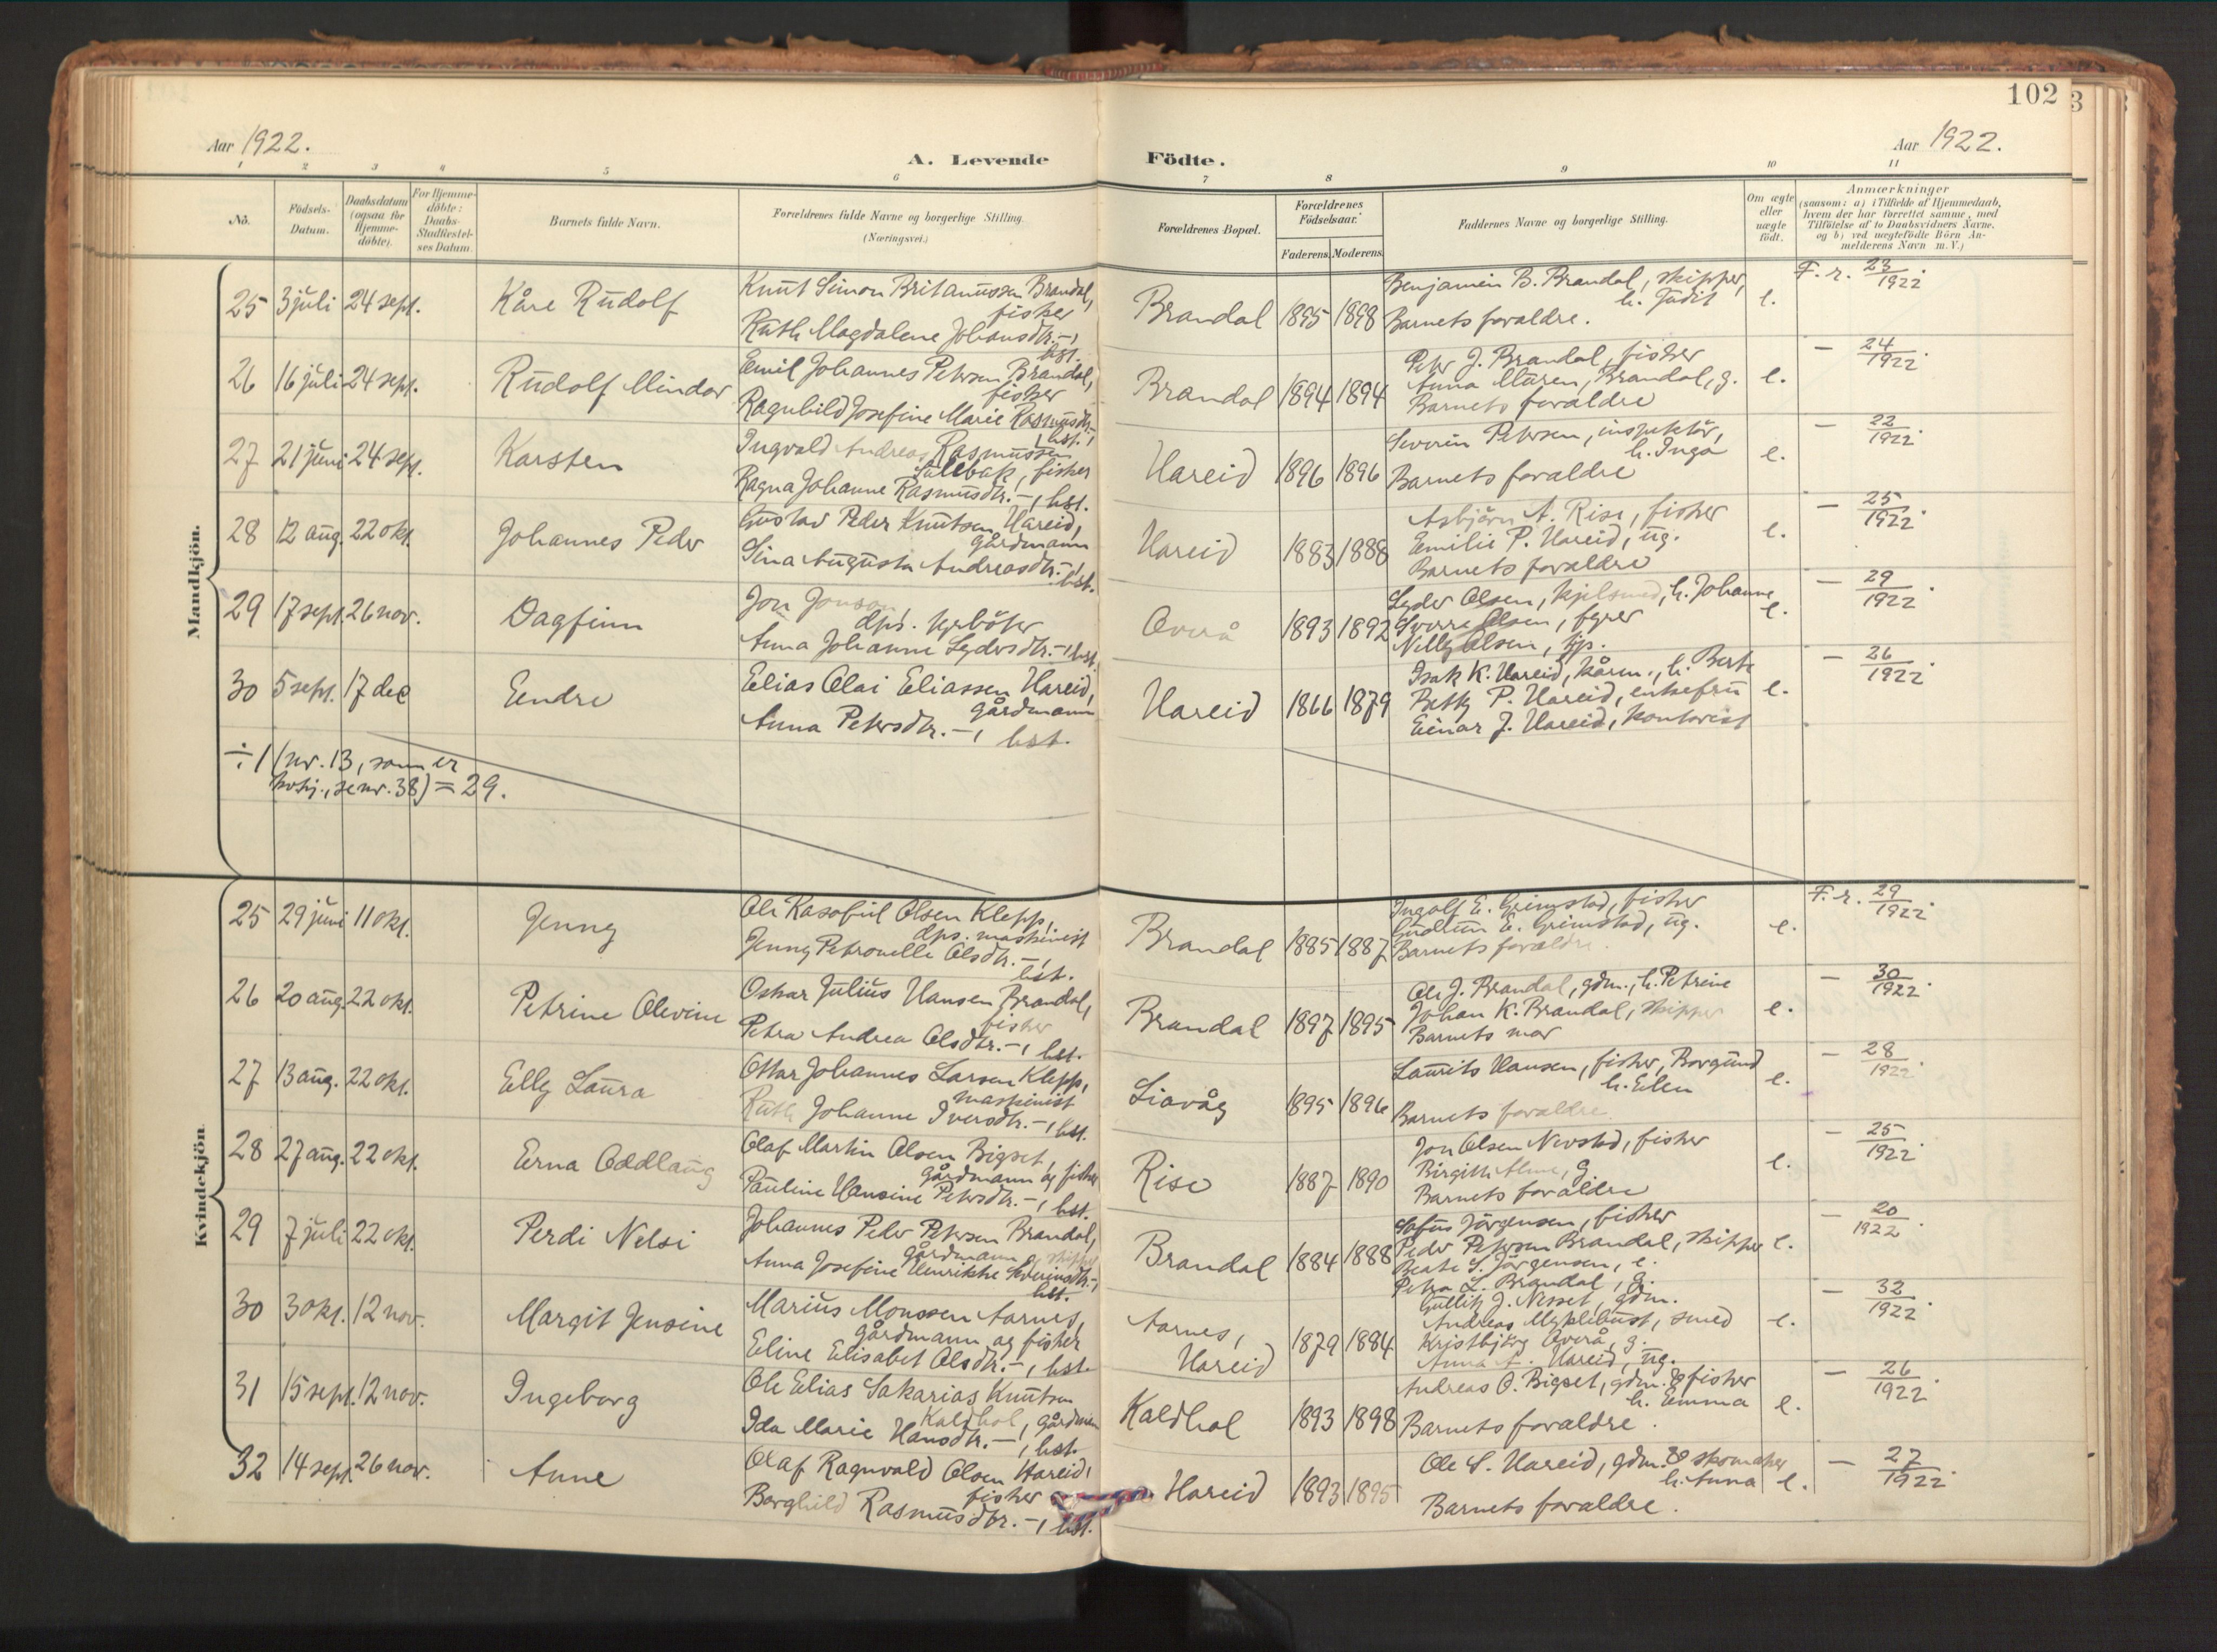 102
3
Aar 1922.
A. Levende
Födte.
Aar 1922.
1 2 3 4 5 6 7 8 9 10 11
Nö.
Födsels-
Datum.
Daabsdatum
(ogsaa for
Hjemme-
döbte).
For Hjemme-
döbte:
Daabs-
Stadfæstel-
ses Datum.
Barnets fulde Navn.
Forældrenes fulde Navne og borgerlige Stilling.
(Næringsvei.)
Forældrenes Bopæl.
Forældrenes
Födselsaar.
Faderens. Moderens.
Faddernes Navne og borgerlige Stilling.
Om ægte
eller
uægte
födt.
Anmærkninger
(saasom: a) i Tilfælde af Hjemmedaab,
hvem der har forrettet samme, med
Tilföielse af to Daabsvidners Navne.
og b) ved uægtefödte Börn An-
melderens Navn m. V.)
Mandkjön.
25 3 juli 24 sept. Kåre Rudolf
Knut Simon Britanussen Brandal,
fisker
Ruth Magdalene Johansdtr. -,
hst.
Brandal 1895 1898
Benjamin B. Brandal, skipper,
h. Judit
Barnets foraldre.
e.
F. r. 23/1922.
26 16 juli 24 sept. Rudolf Mindor
Emil Johannes Petersen Brandal,
fisker
Ragnhild Josefine Marie Rasmusdtr.
-, hst.
Brandal 1894 1894
Peter J. Brandal, fisker
Anna Maren, Brandal, g.
Barnets foraldre
e.
- 24/1922.
27 21 juni 24 sept. Karsten
Ingvald Andreas Rasmussen
fisker
Ragna Johanne Rasmusdtr. -, hst.
Hareid 1896 1896
Severin Petersen, inspektör,
h. Inga
Barnets foraldre
e.
- 22/1922.
28 12 aug. 22 okt. Johannes Peder
Gustav Peder Knutsen Hareid,
gårdmann
Sina Augusta Andreasdtr. -,
hst.
Hareid 1883 1888
Asbjörn A. Rise, fisker
Emilie P. Hareid, ug.
Barnets foraldre
e.
- 25/1922.
29 17 sept. 26 nov. Dagfinn
Jon Jonson,
dps. fyrböter
Anna Johanne Sydersdtr. -, hst.
Overå 1893 1892
Syder Olsen, kjelsmed, h. Johanne
Sverre Olsen, fyrer
Nelly Olsen, tjp.
e.
- 29/1922.
30 5 sept. 17 dec Eendre
Elias Olai Eliassen Hareid,
gårdmann
Anna Petersdtr. -, hst.
Hareid 1866 1879
Isak K. Hareid, kårm., h. Berte
Betty P. Hareid, enkefru
Einar J. Hareid, kontorist
e.
- 26/1922.
÷ 1 (nr. 13, som er
, se nr. 38) = 29.
Kvindekjön
25 29 juni 11 okt. Jenny
Ole Olsen Klepp,
dps. maskinist
Jenny Petronelle Olsdtr. -,
hst.
Brandal 1885 1887
Ingolf E. Grimstad, fisker
Gudrun E. Grimstad, ug.
Barnets foraldre.
e.
F. r. 29/1922.
26 20 aug. 22 okt. Petrine Olevine
Oskar Julius Hansen Brandal,
fisker
Petra Andrea Olsdtr. -, hst.
Brandal 1897 1895
Ole J. Brandal, gdm., h. Petrine
Johan K. Brandal, skipper
Barnets mor
e.
- 30/1922.
27 13 aug. 22 okt. Elly Laura
Ottar Johannes Larsen Klepp,
maskinist
Ruth Johanne Iversdtr. -, hst.
Liavåg 1895 1896
Laurits Hansen, fisker, Borgund
h. Elen
Barnets foraldre.
e.
- 28/1922.
28 27 aug. 22 okt. Erna Oddlaug
Olaf Martin Olsen Bigset,
gårdmann og fisker
Pauline Hansine Petersdtr. -, hst.
Rise 1887 1890
Jon Olsen Nevstad, fisker
Birgitte Alme, g.
Barnets foraldre
e.
- 25/1922.
29 7 juli 22 okt. Perdi Nelsi
Johannes Peder Petersen Brandal,
gårdmann og skipper
Anna Josefine Henrikke Severinsdtr. -,
hst.
Brandal 1884 1888
Sofus Jörgensen, fisker
Peder Petersen Brandal, skipper
Beate S. Jörgensen, e.
Petra L. Brandal, g.
e.
- 20/1922.
30 3 okt. 12 nov. Margit Jensine
Marius Monssen Aarnes,
gårdmann og fisker
Eline Elisabet Olsdtr. -, hst.
Aarnes,
Hareid
1879 1884
Gullik J. Nesset, gdm.
Andreas Myklebust, smed
Kristbjörg Overå, g.
Anna A. Hareid, ug.
e.
- 32/1922.
31 15 sept. 12 nov. Ingeborg
Ole Elias Sakarias Knutsen
Kaldhol, gårdmann
Ida Marie Hansdtr. -, hst.
Kaldhol 1893 1898
Andreas O. Bigset, gdm. & fisker
h. Emma
Barnets foraldre.
e.
- 26/1922.
32 14 sept. 26 nov. Anne
Olaf Ragnvald Olsen Hareid,
fisker
Borghild Rasmusdtr. -, hst.
Hareid 1893 1895
Ole S. Hareid, gdm. & skomaker
h. Anna
Barnets foraldre.
e.
- 27/1922.